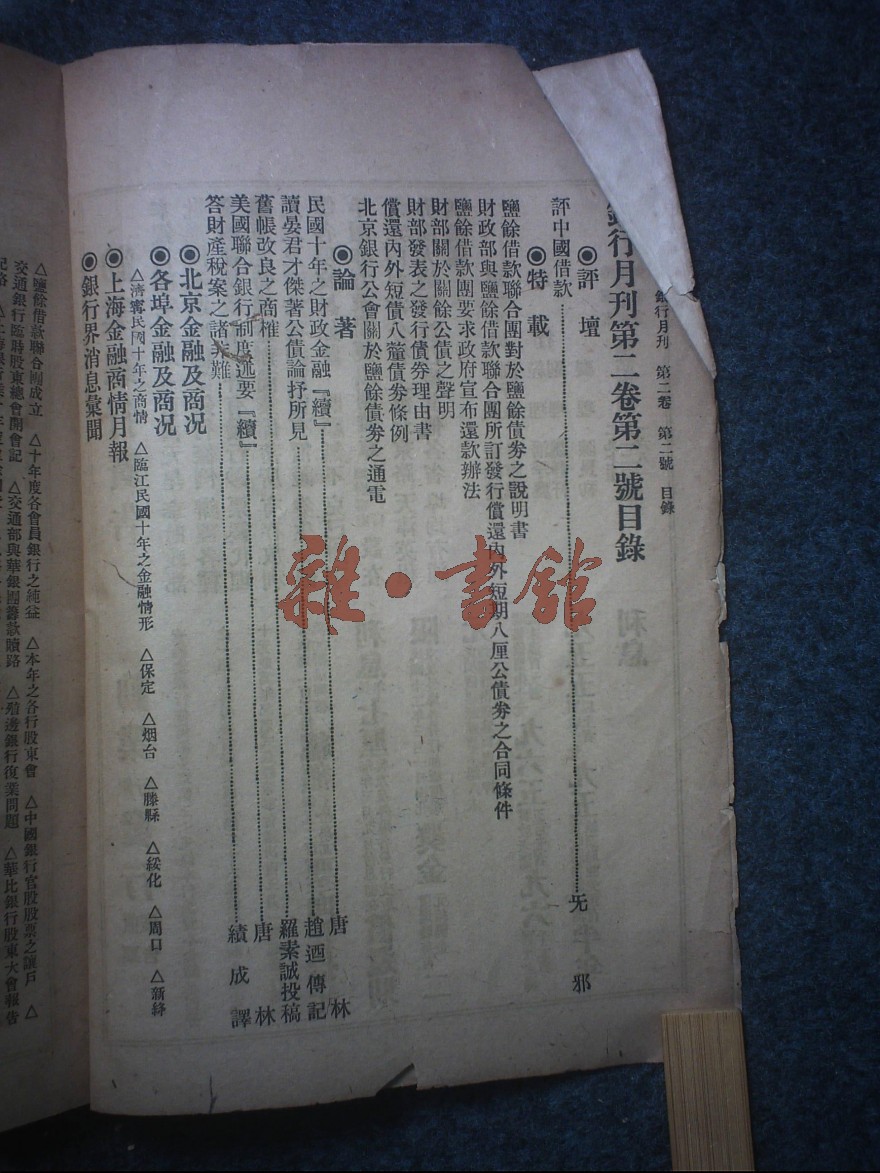 銀行月刊 第二卷 第二號 目錄
銀行月刊第二卷第二號目錄
◉評壇
評中國借款 旡邪
◉特載
鹽餘借款聯合團對於鹽餘債券之說明書
財政部與鹽餘借款聯合團所訂發行償還內外短期八厘公債券之合同條件
鹽餘借款團要求政府宣布還款辦法
財部關於關餘公債之聲明
財部發表之發行債券理由書
償還內外短債八釐債券條例
北京銀行公會關於鹽餘債券之通電
◉論著
民國十年之財政金融『續』 唐林
讀晏君才傑著公債論抒所見 趙迺傳記
舊帳改良之商榷 羅素誠投稿
美國聯合銀行制度述要『續』 唐林
答財產稅案之諸非難 績成譯
◉北京金融及商況
◉各埠金融及商况
△濟寗民國十年之商情 △臨江民國十年之金融情形 △保定 △烟台 △滕縣 △綏化 △周口 △新絳
◉上海金融商情月報
◉銀行界消息彙聞
△鹽餘借款聯合團成立 △十年度各會員銀行之純益 △本年之各行股東會 △中國銀行官股股票之讓戶 △
交通銀行臨時股東總會開會記 △交通部與華銀團籌款贖路 △殖邊銀行復業問題 △華比銀行股東大會報告
雜·書館